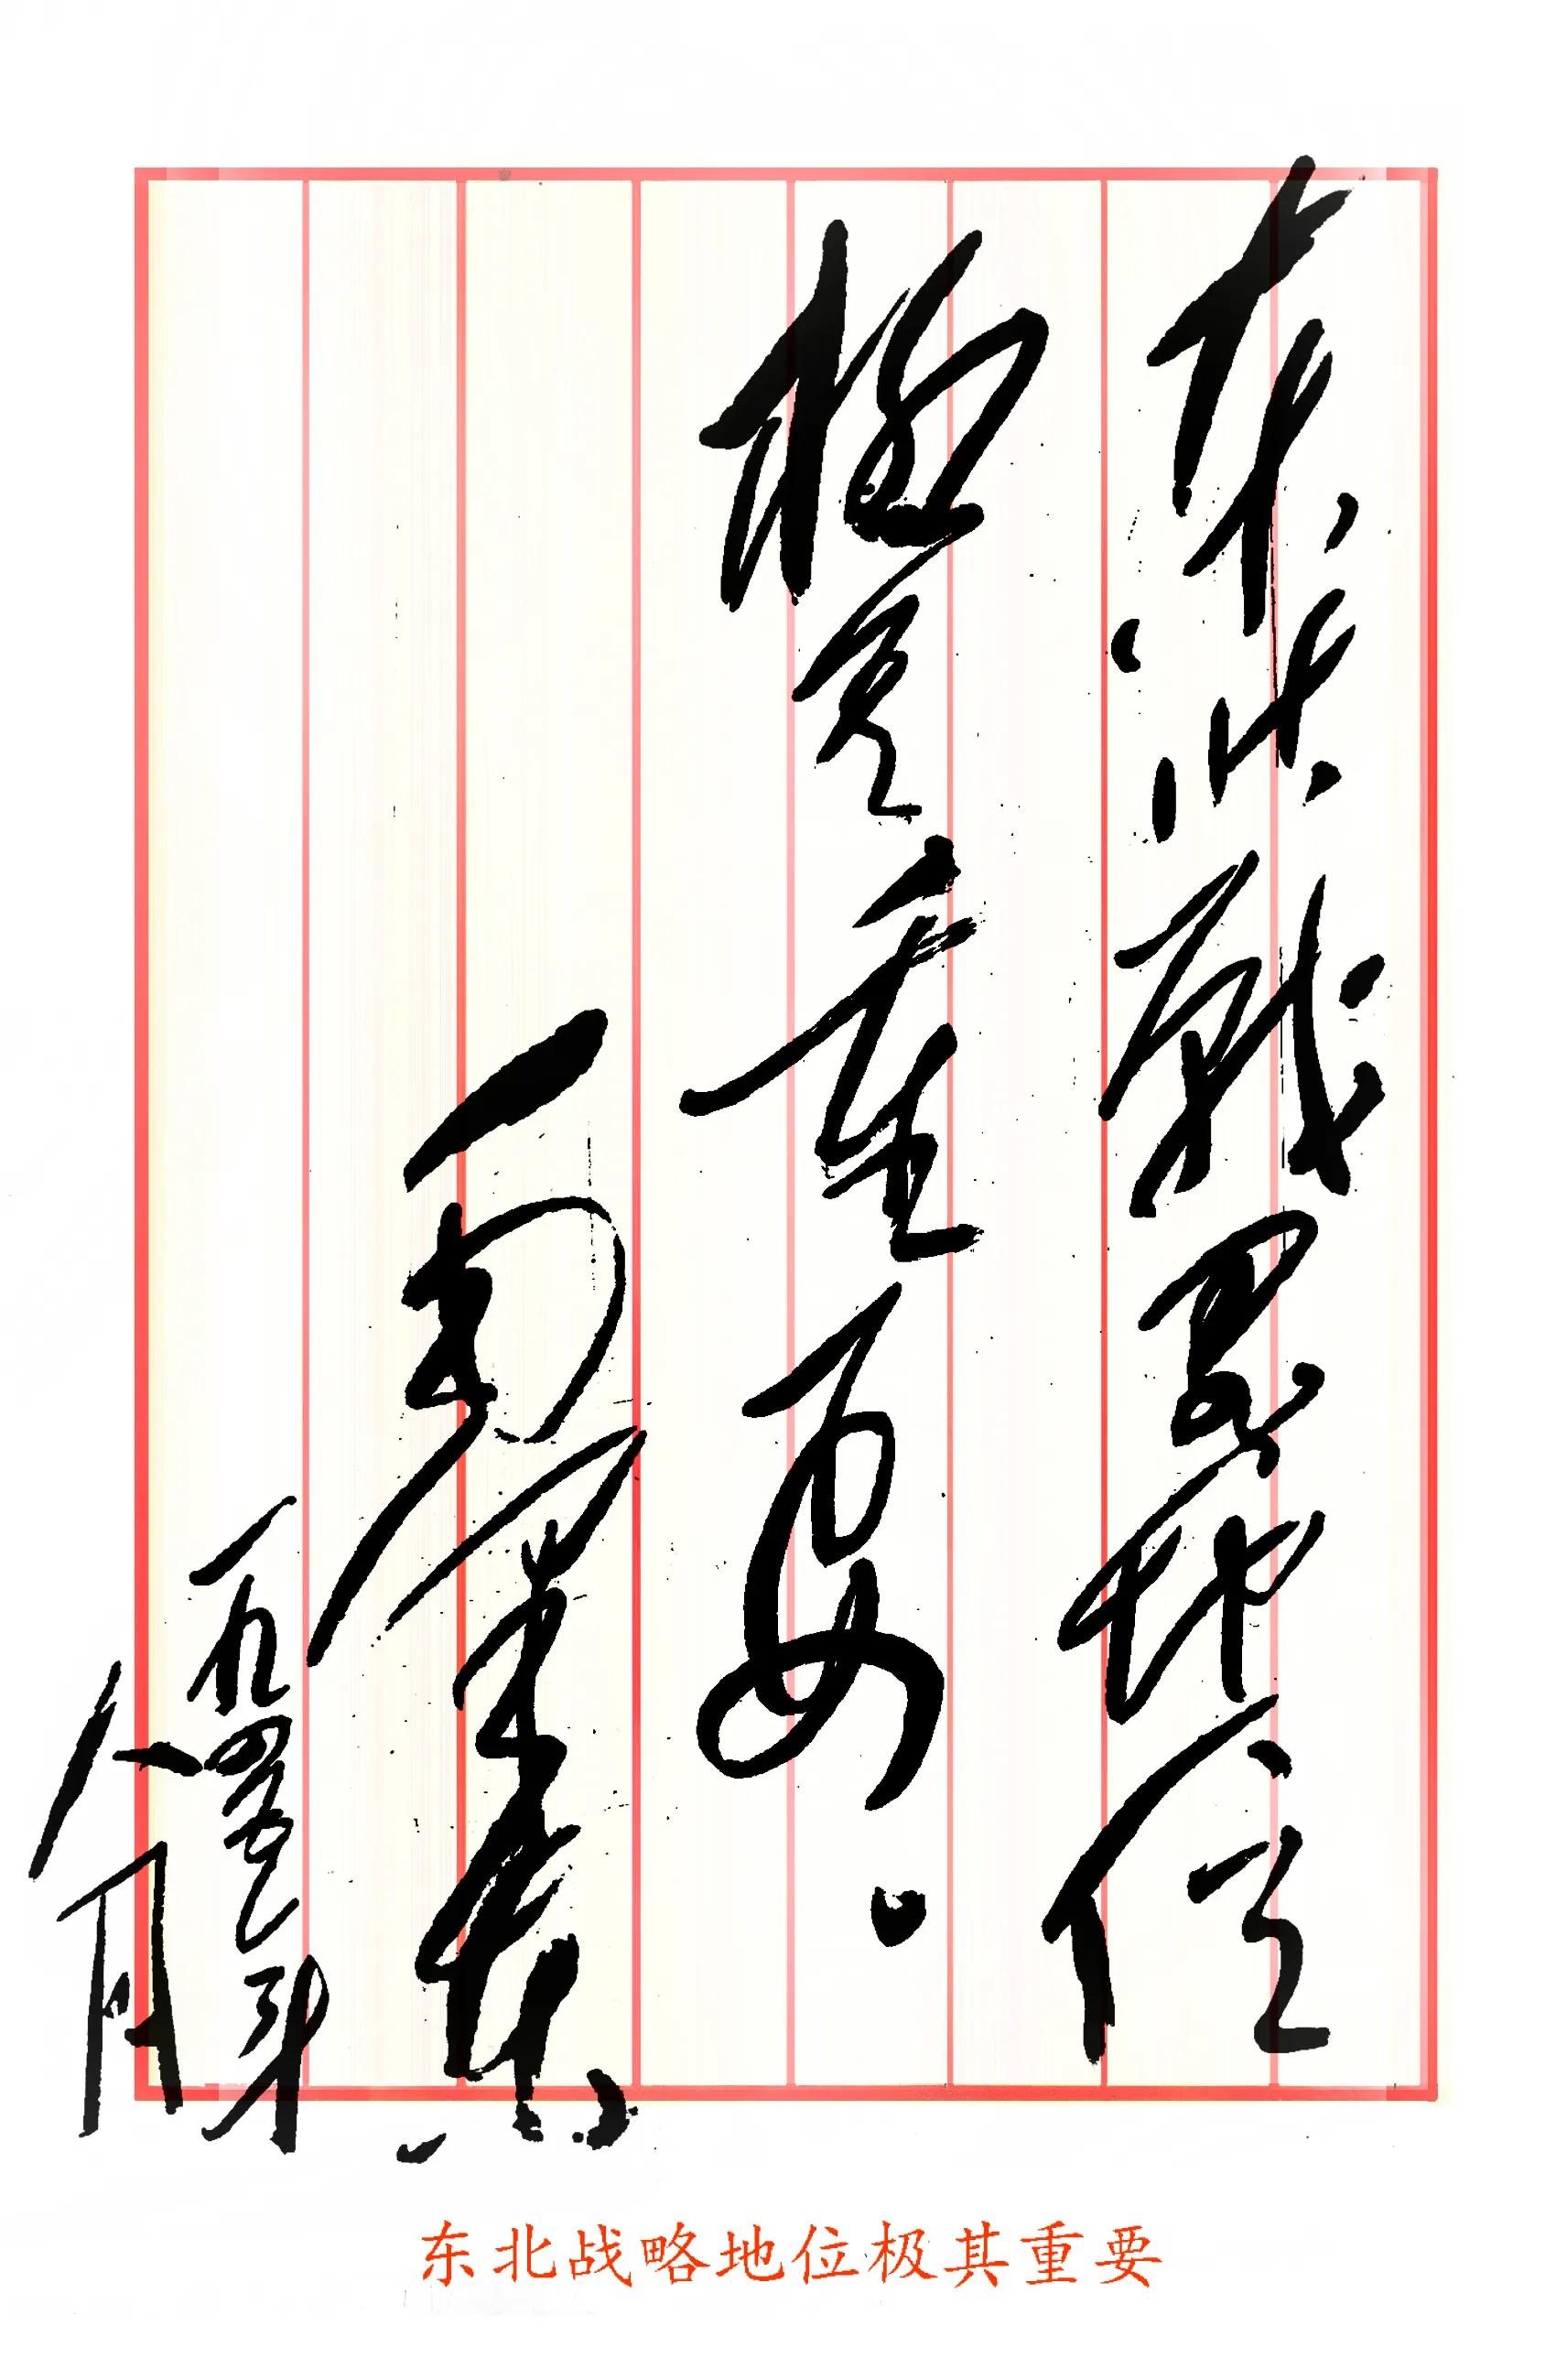 东北战略地位
极其重要。
毛泽东
一九四五年
八月
东北战略地位极其重要